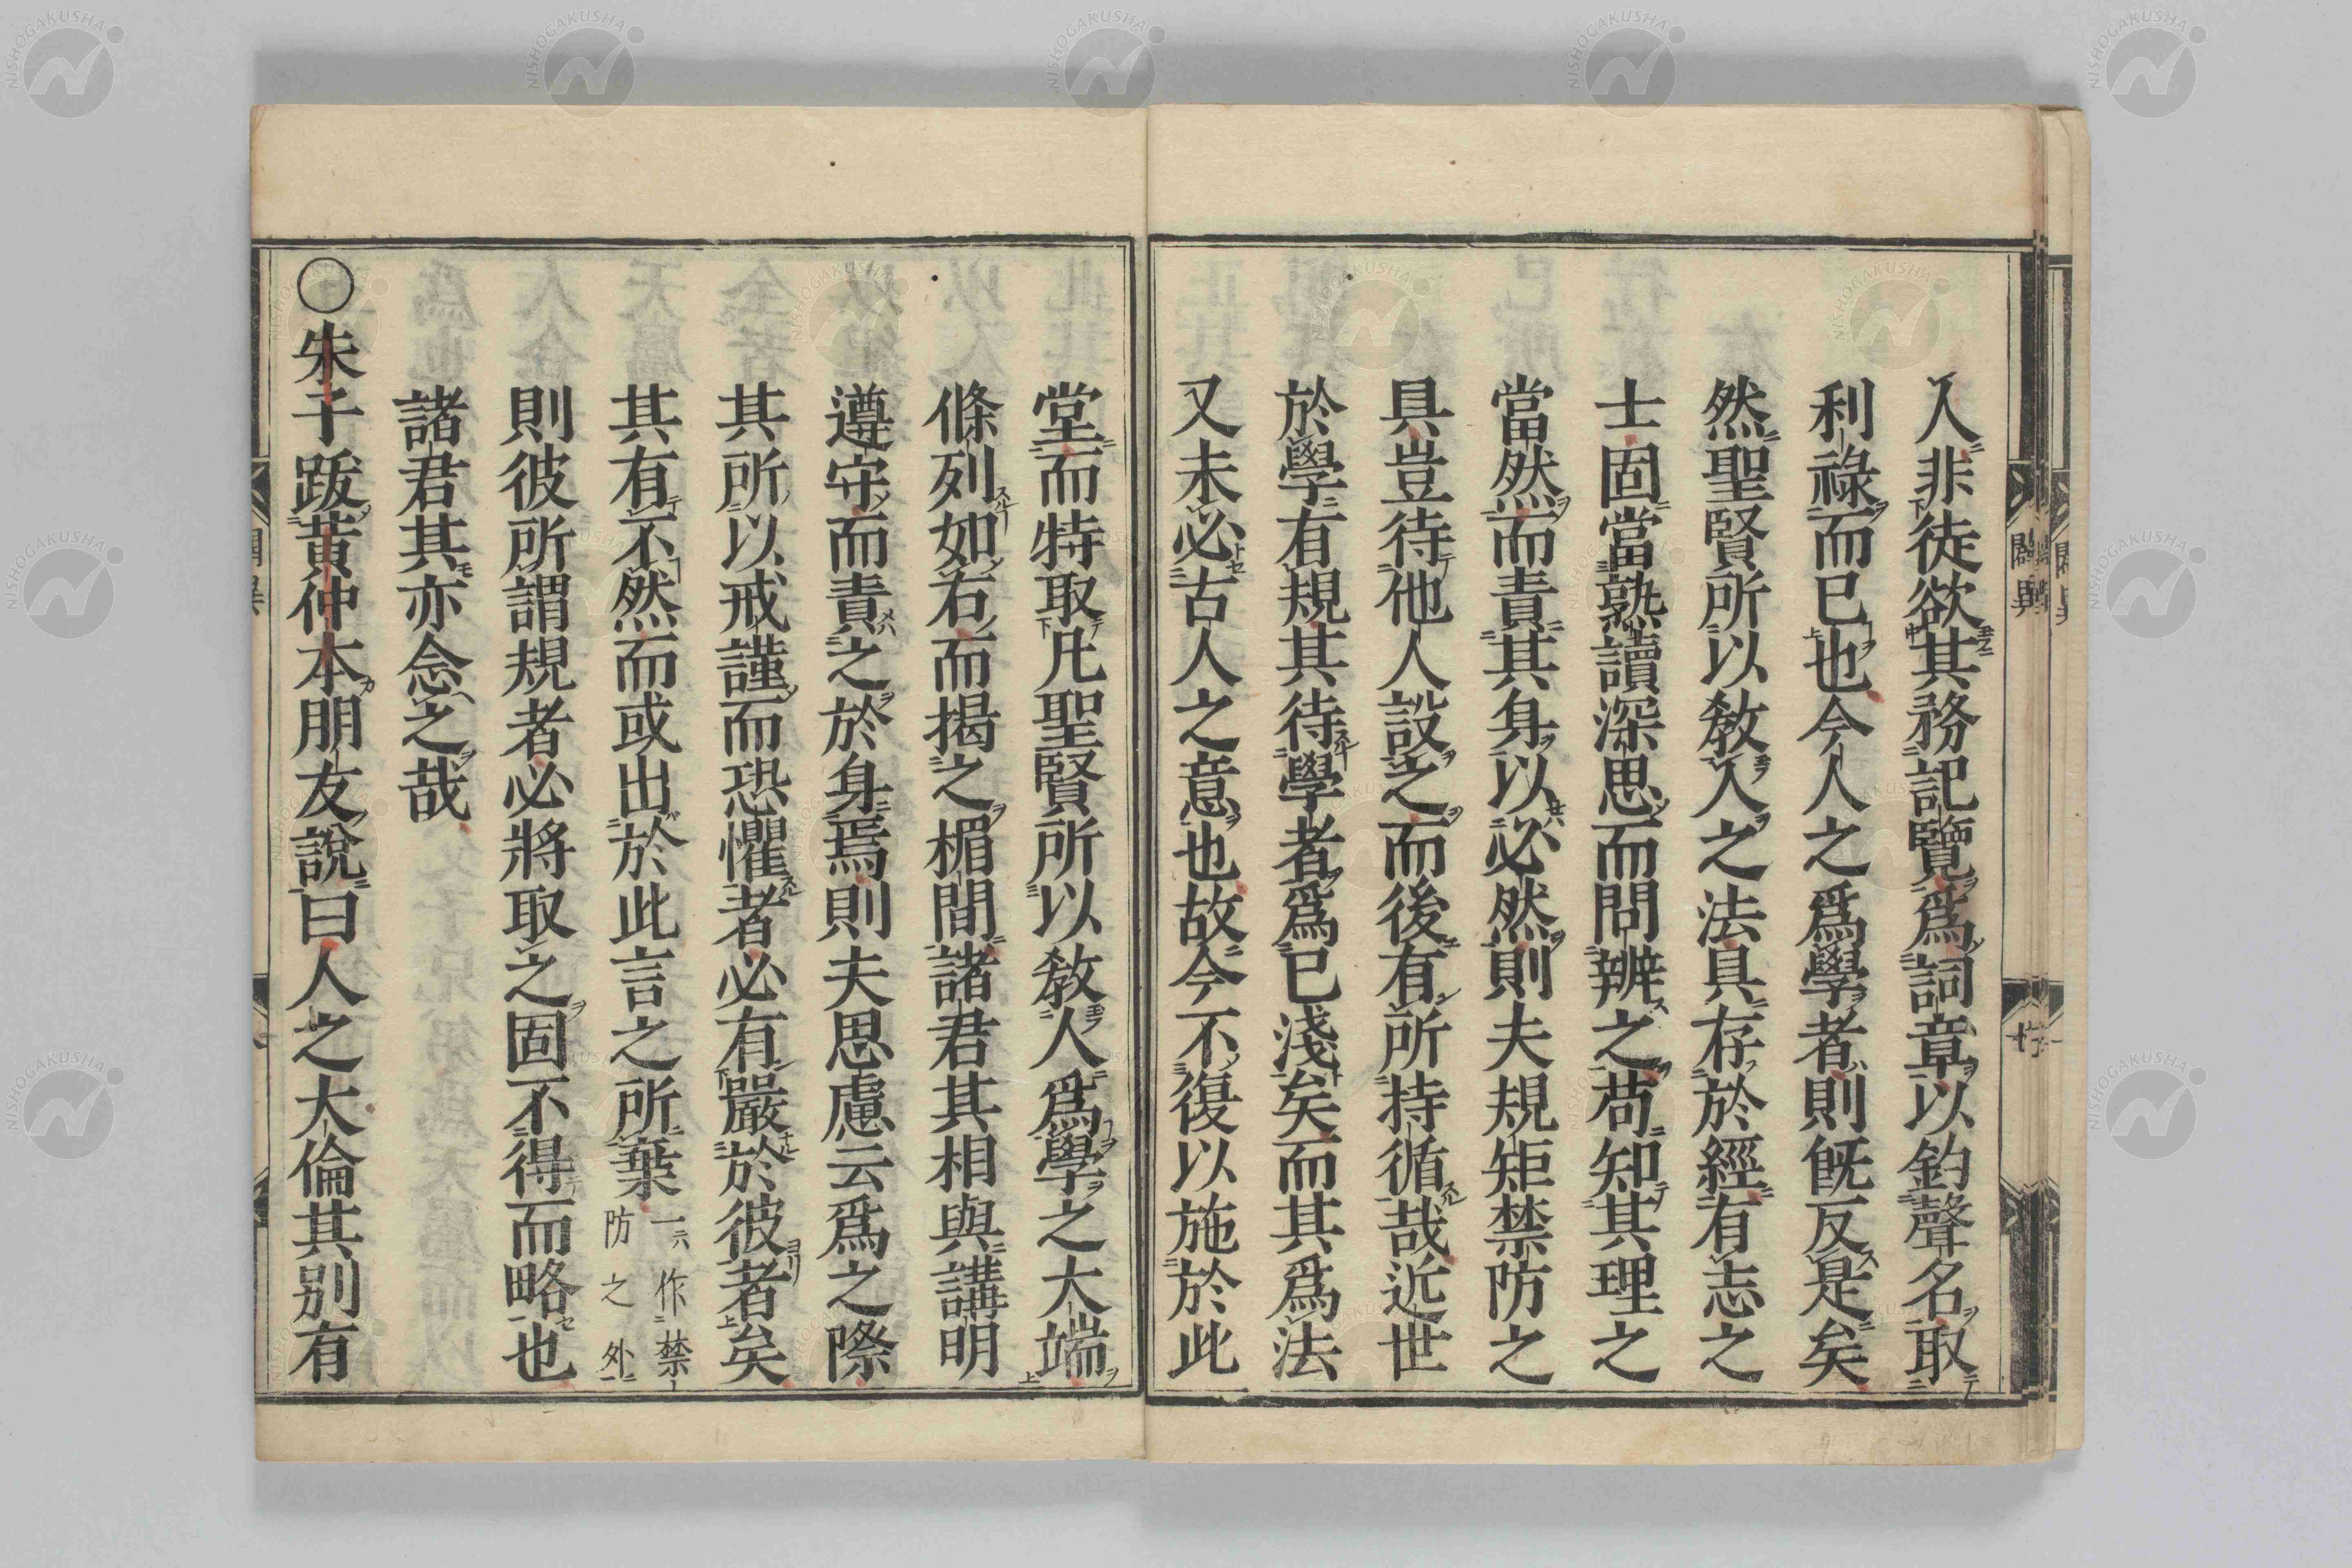 人非徒欲其務記覽爲詞章以釣聲名取
利祿而已也今人之爲學者則旣反是矣
然聖賢所以敎人之法具存於經有志之
士固當熟讀深思而問辨之苟知其理之
當然而責其身以必然則夫規矩禁防之
具豈待他人設之而後有所持循哉近世
於學有規其待學者爲已淺矣而其爲法
又未必古人之意也故今不復以施於此
堂而特取凡聖賢所以敎人爲學之大端
條列如右而揭之楣間諸君其相與講明
遵守而責之於身焉則夫思慮云爲之際
其所以戒謹而恐懼者必有嚴於彼者矣
其有不然而或出於此言之所棄一六作禁防之外
則彼所謂規者必將取之固不得而略也
諸君其亦念之哉
○朱子跋黃仲本朋友說曰人之大倫其別有
闢異
NISHOGAKUSHA